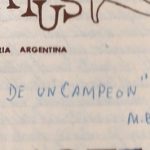 TUS
RIA ARGENTINA
DE UN CAMPEON"
M.E